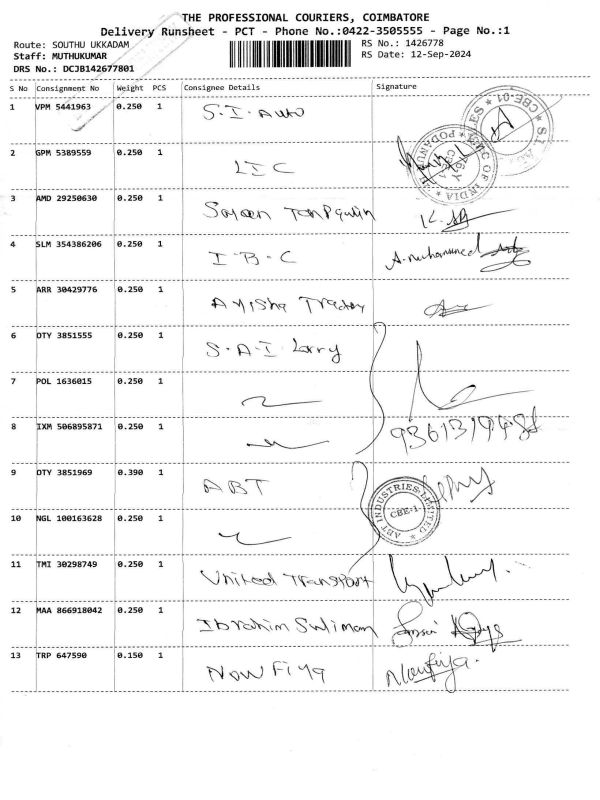 THE PROFESSIONAL COURIERS, COIMBATORE
Delivery Runsheet - PCT - Phone No.:0422-3505555 - Page No.:1
Route: SOUTHU UKKADAM RS No.: 1426778
Staff: MUTHUKUMAR RS Date: 12-Sep-2024
DRS No.: DCJB142677801
S No Consignment No Weight PCS Consignee Details Signature
1 VPM 5441963 0.250 1 S.I. Auto
2 GPM 5389559 0.250 1 LIC
3 AMD 29250630 0.250 1
4 SLM 354386206 0.250 1 I.B.C
5 ARR 30429776 0.250 1 Ayisha
6 OTY 3851555 0.250 1 S.A.I Lorry
7 POL 1636015 0.250 1
8 IXM 506895871 0.250 1
9 OTY 3851969 0.390 1 ABT
ABT INDUSTRIES LIMITED
CBE-1
10 NGL 100163628 0.250 1
11 TMI 30298749 0.250 1 United Transport
12 MAA 866918042 0.250 1 Ibrahim Suliman
13 TRP 647590 0.150 1 Nowfiya Nowfiya